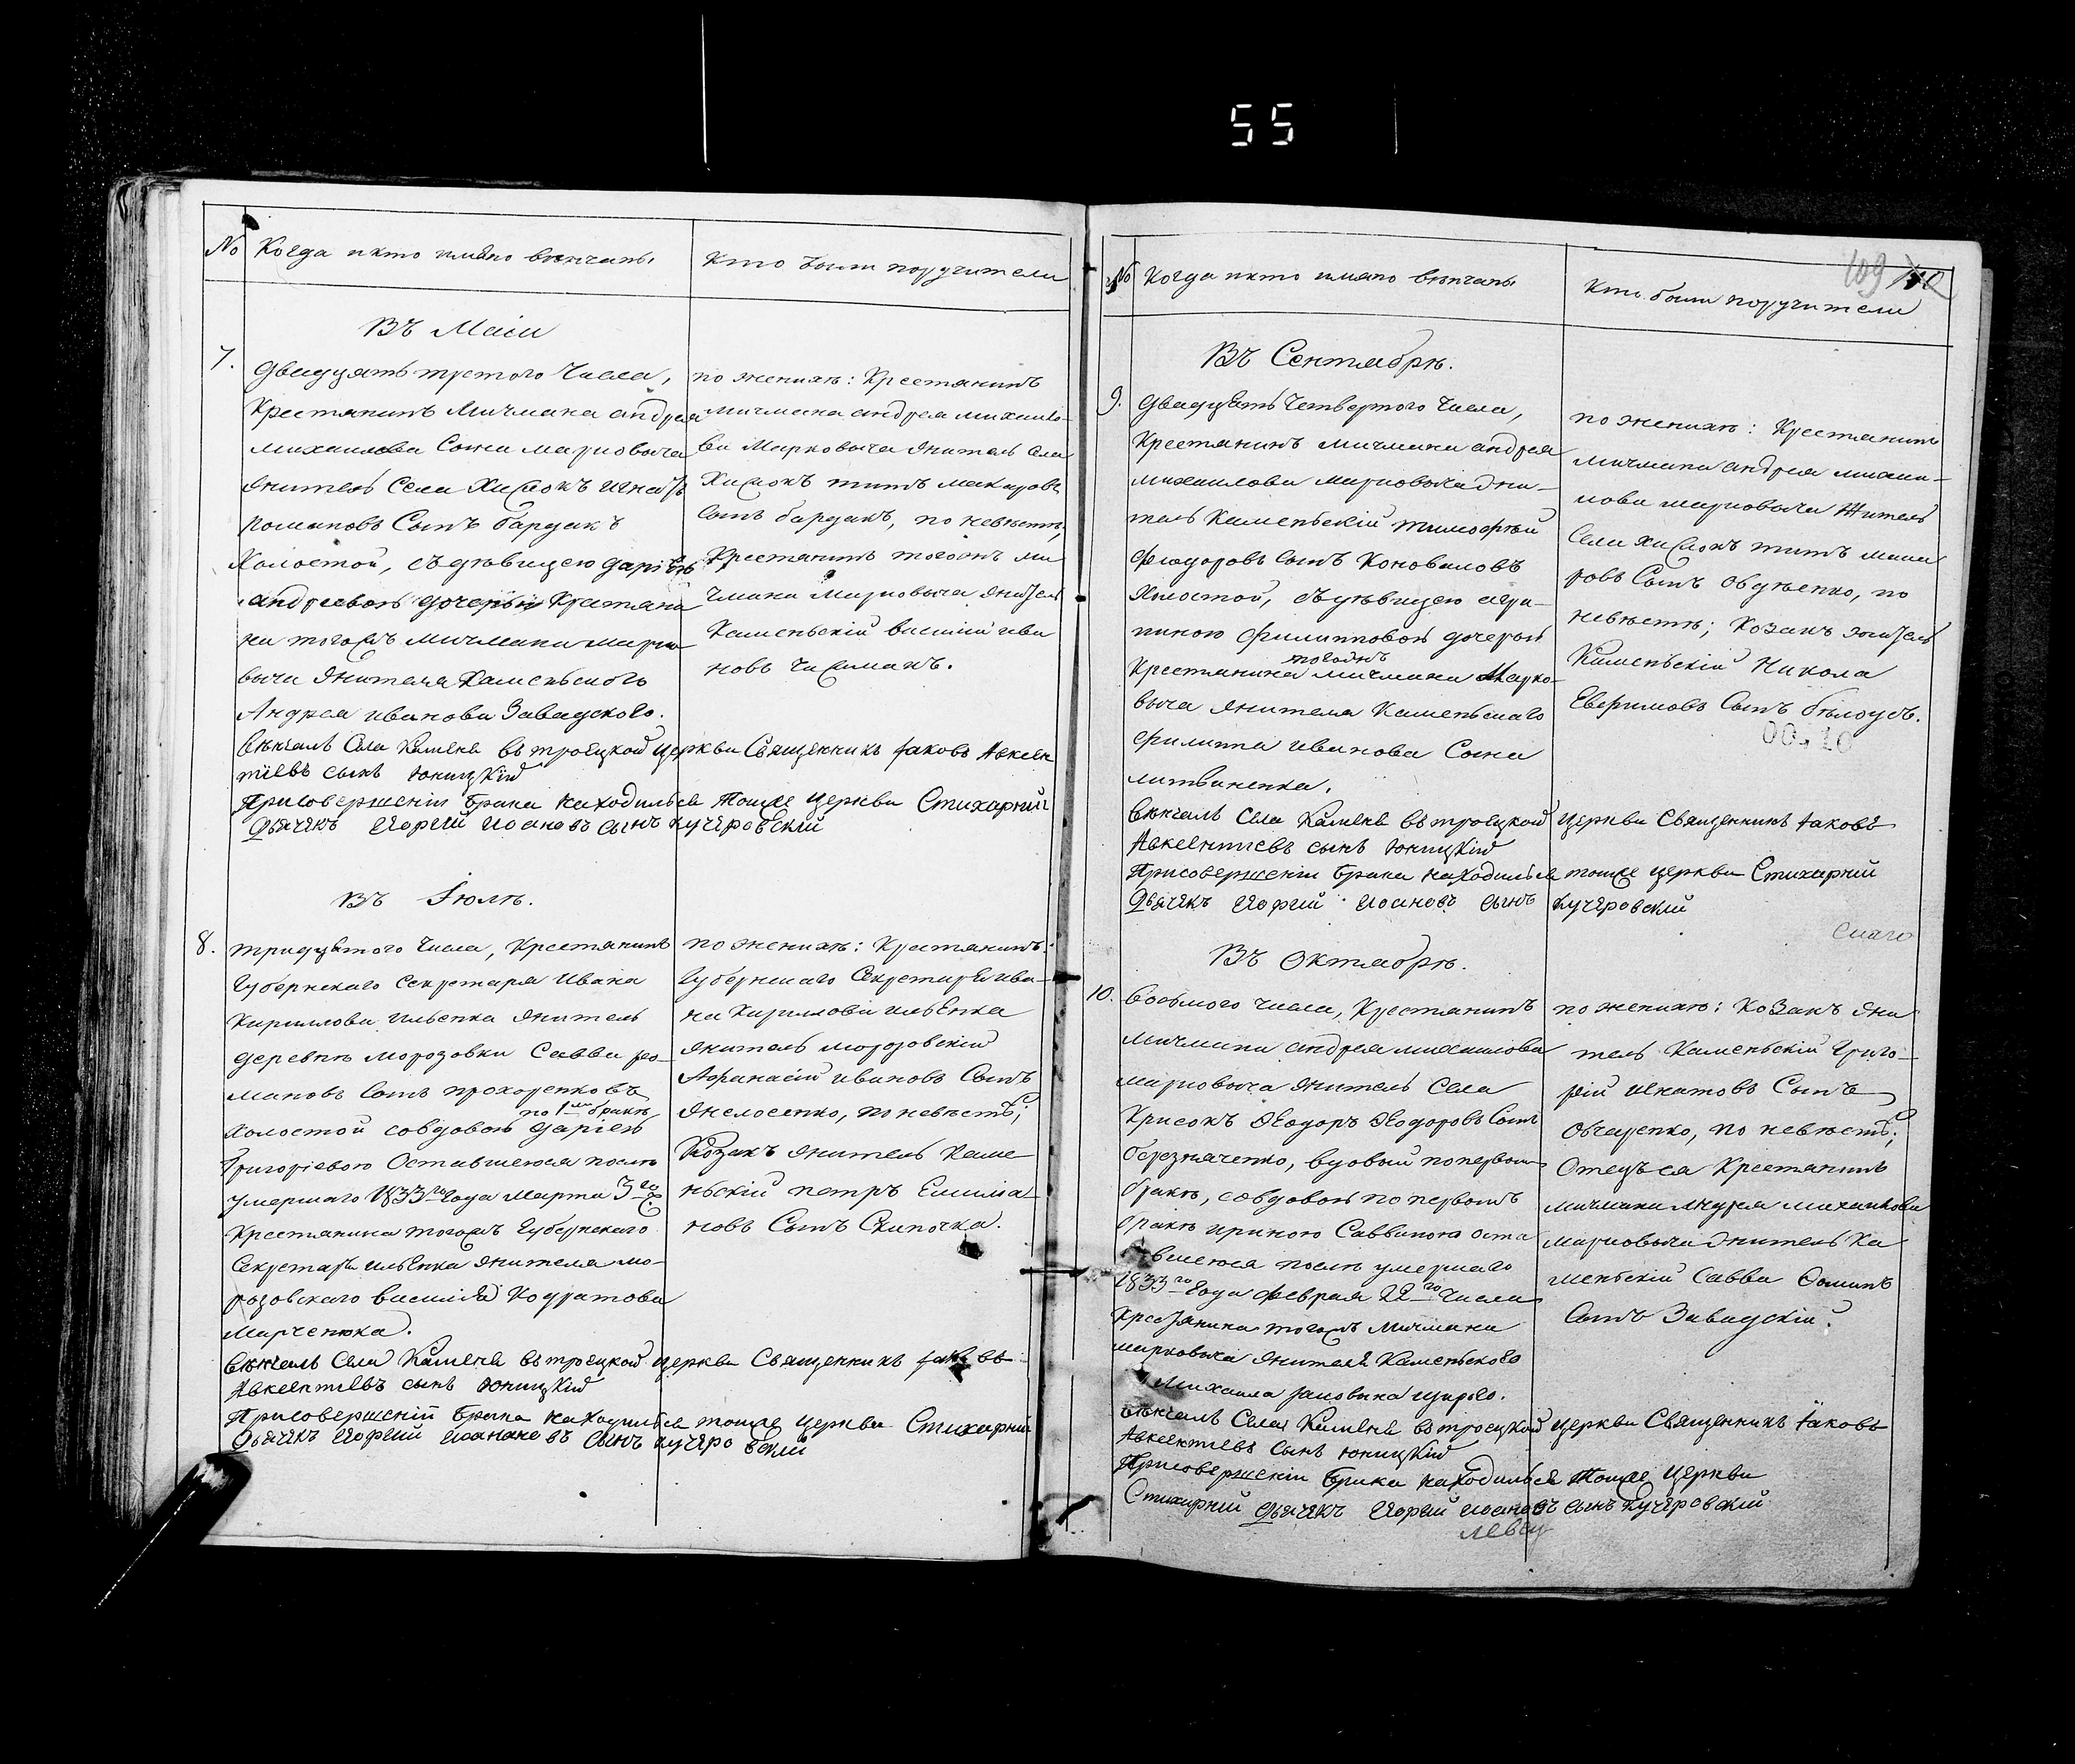 55
№ Когда и кто имяно вѣнчаны
Кто были поручители
Въ Маіи
7. двадцять третого Числа,
Крестянинъ Мичмана андрея
михаилова Сына марковича
житель Села Хисюкъ игнатъ
романовъ Сынъ бардакъ
Холостой, съ дѣвицею даріею
андреевою дочерью Крестяни
на тогожъ мичмана марко
выча жителя Каменьского
Андрея иванова Завадского.
по женихѣ: Крестянинъ
мичмана андрея михаило-
ва Марковыча житель Села
Хисюкъ титъ макаровъ
Сынъ бардакъ, по невѣстѣ,
Крестянинъ тогожъ ми
чмана Марковыча житель
Каменьскій василій ива
новъ Чисмакъ.
вѣнчалъ Села Каменя въ троецкой церкви Священникъ Іаковъ Авксен
тіевъ сынъ Юницкій
Присовершеніи брака находился тоцже церкви Стихарній
Дьячекъ Иоргій Иоановъ сынъ кучеровскій
Въ Іюлѣ.
8. тридцятого Числа, Крестянинъ
Губернскаго Секретаря Ивана
Кириллова ильенка житель
деревнѣ морозовки Савва ро-
мановъ Сынъ прохоренковъ
по 1му бракѣ
холостой совдовою даріею
Григоріевою Оставшеюся послѣ
умершаго 1833го Года Марта 3го
Крестянина тогожъ Губернского
Секретаря ильенка жителя мо-
розовскаго василія Кодратова
Марченюка.
по женихѣ: Крестянинъ
Губернскаго Секретаря ива-
на Кириллова ильенка
житель морозовскій
Афанасій ивановъ Сынъ
жнелосенко, по невѣстѣ;
Козакъ житель Каме
ньскій петръ Емилiа-
новъ Сынъ Скипочка.
вѣнчалъ Села Каменя въ троецкой церкви Священникъ Іаковъ
Авксентіевъ сынъ Юницкій
Присовершеніи брака находился тоцже церкви Стихарній
Дьячекъ Иоргій Иоановъ сынъ кучеровскій
109
№ Когда и кто имяно вѣнчаны
Кто были поручители
Въ Сентябрѣ.
9. двадцять Четвертого Числа,
Крестянинъ мичмана андрея
михаилова марковыча жи-
тель Каменьскій тимофѣй
феодоровъ Сынъ Коноваловъ
Холостой, съ дѣвицею агри-
пиною филипповою дочерью
тогожъ
Крестянина мичмана Марко-
выча жителя Каменьскаго
филиппа иванова Сына
литвиненка.
по женихѣ: Крестянинъ
мичмана андрея михаи-
лова марковыча Житель
Села хисюкъ титъ мака
ровъ Сынъ Обуѣенко, по
невѣстѣ; Козакъ житель
Каменьскій Никола
Ефримовъ Сынъ бѣлоусъ.
вѣнчалъ Села Каменя въ троецкой церкви Священникъ Іаковъ
Авксентіевъ сынъ Юницкій
Присовершеніи брака находился тоцже церкви Стихарній
Дьячекъ Иоргій Иоановъ сынъ кучеровскій
Въ Октябрѣ.
10. восьмого числа, Крестянинъ
мичмана андрея михаилова
марковыча житель Села
Крисокъ Ѳеодоръ Ѳеодоровъ Сынъ
березняченко, вдовый по первомъ
бракѣ, совдовою по первомъ
бракѣ ириною Саввиною оста
вшеюся послѣ умершаго
1833го Года февраля 22го Числа
Крестянина тогожъ Мичмана
марковыча жителя Каменьского
Михаила
по женихѣ: Козакъ жи
тель Каменьскій Григо-
рій игнатовъ Сынъ
Овчаренко, по невѣстѣ;
Отецъ ея Крестянинъ
мичмана Андрея михаилова
марковыча житель Ка
меньскій Савва Фоминъ
Сынъ Завадскій.
вѣнчалъ Села Каменя въ троецкой церкви Священникъ Іаковъ
Авксентіевъ сынъ Юницкій
Присовершеніи брака находился тоцже церкви
Стихарній Дьячекъ Иоргій Иоановъ сынъ кучеровскій